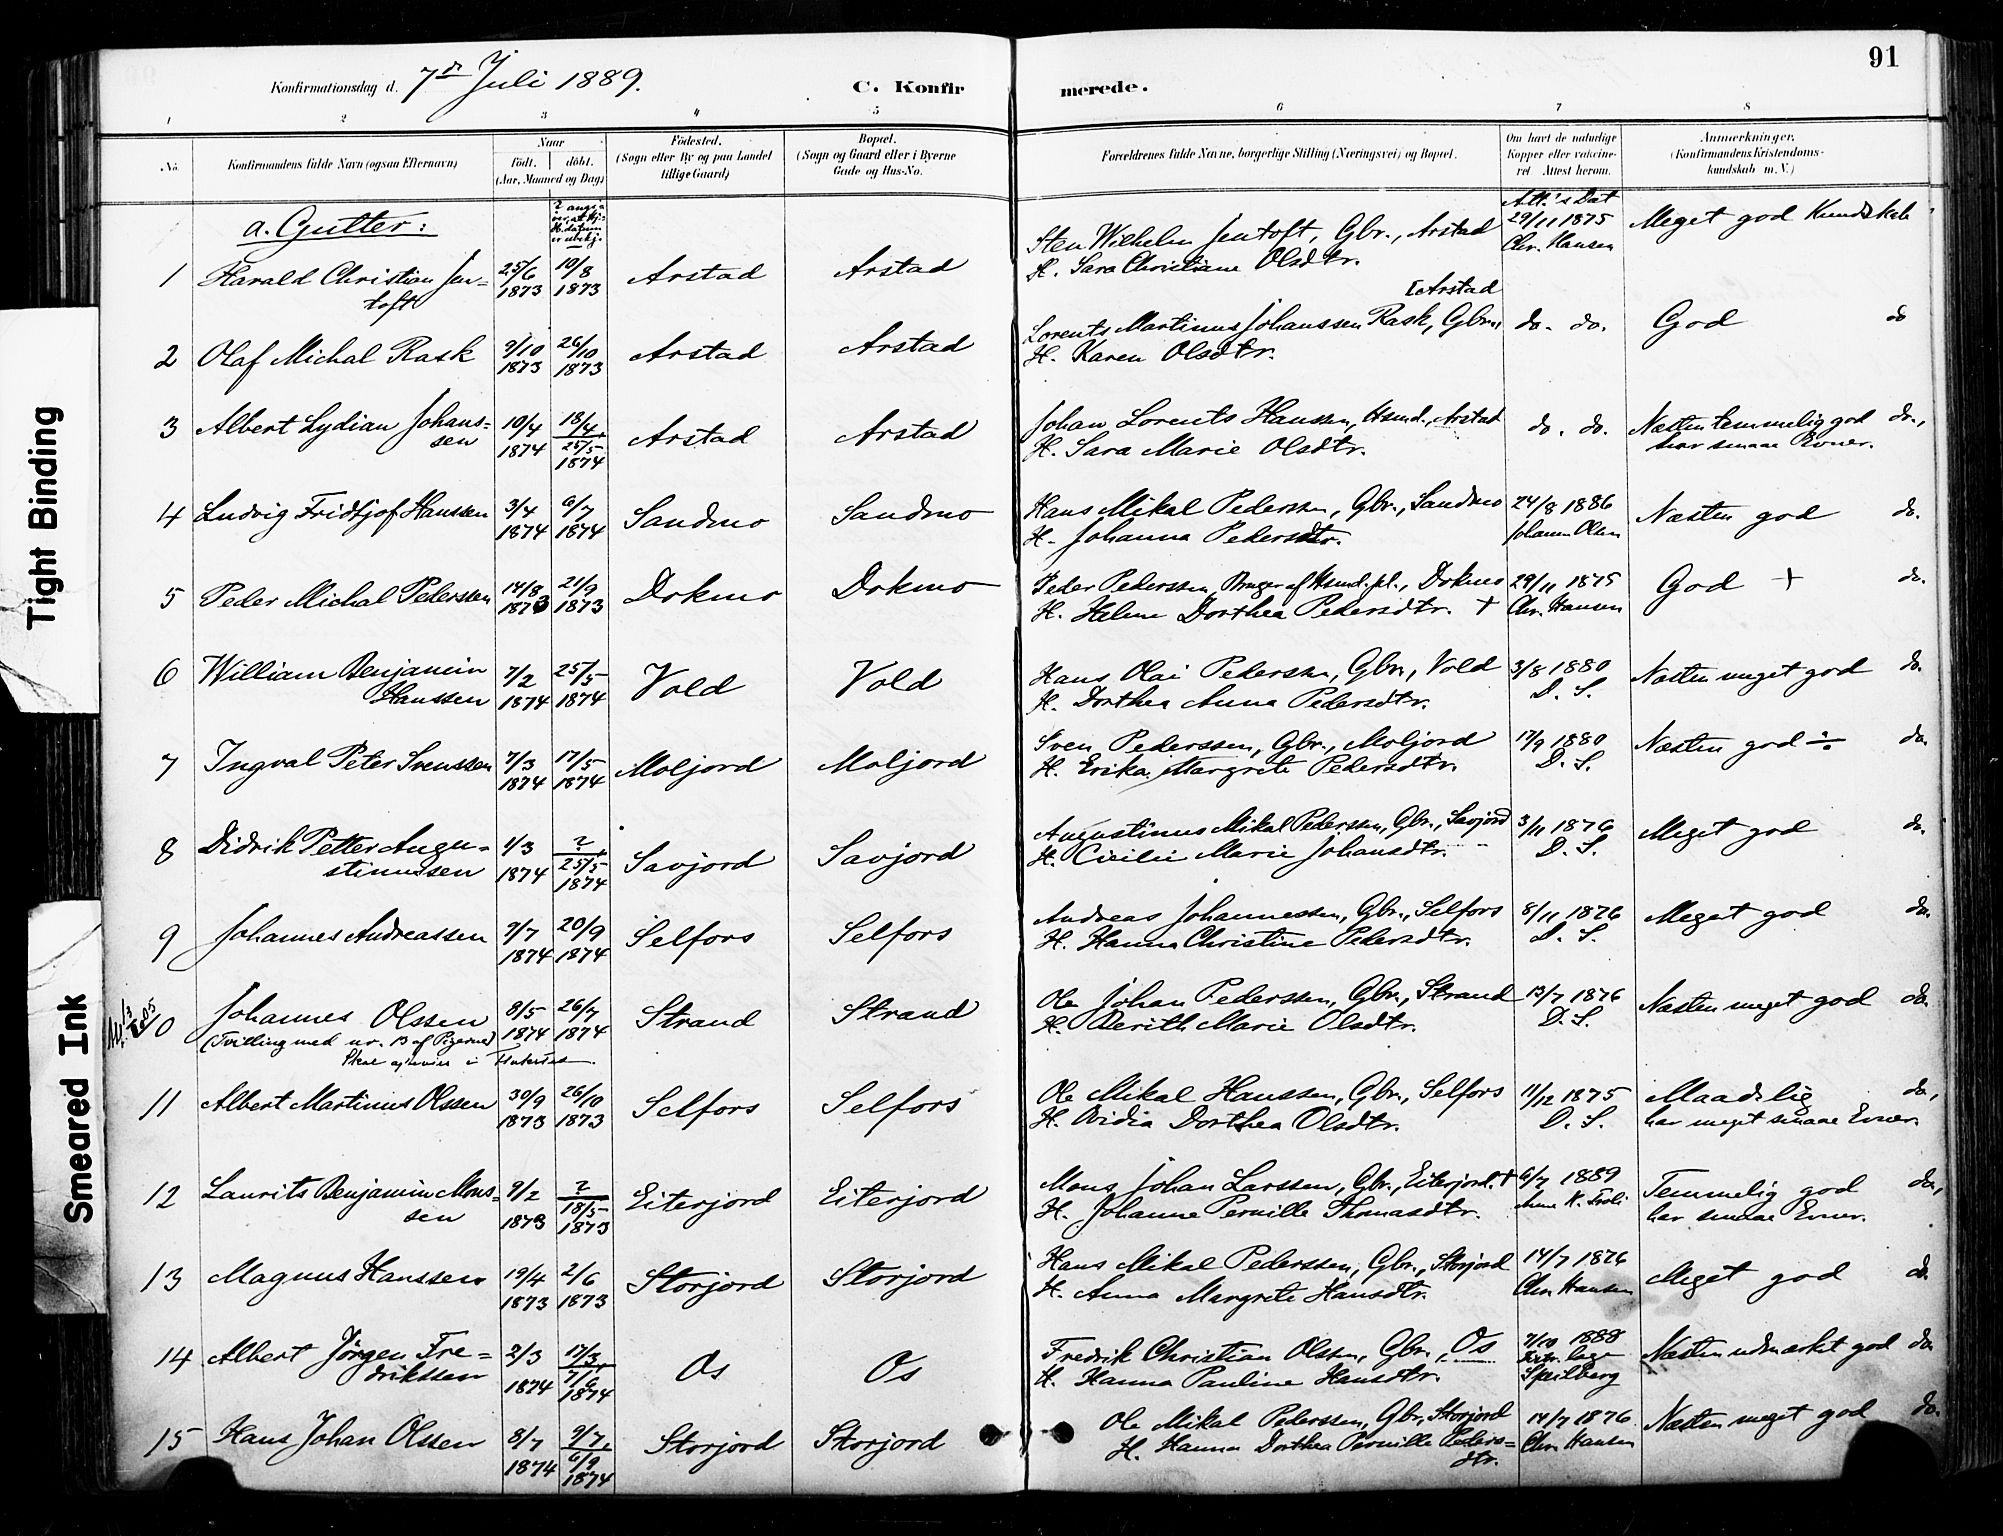 91
Konfirmationsdag d. 7de Juli 1889.
C. Konfirmerede.
1 2 3 4 5 6 7 8
No.
Konfirmandens fulde Navn (ogsaa Efternavn)
Naar
født. døbt.
(Aar, Maaned og Dag)
Fødested.
(Sogn eller By og paa Landet
tillige Gaard)
Bopæl.
(Sogn og Gaard eller i Byerne
Gade og Hus-No.
Forældrenes fulde Navne, borgerlige Stilling (Næringsvei) og Bopæl.
Om havt de naturlige
Kopper eller vaccine-
ret Attest herom.
Anmærkninger.
(Konfirmandens Kristendoms-
kundskab m. V.)
a. Gutter:
1 Harald Christian Jen-
toft
25/6 1873
10/8 1873
Arstad
Arstad
Sten Wilhelm Jentoft, Gbr., Arstad
H. Sara Christiane Olsdtr.
Att.'s Dat
29/11 1875
Chr. Hansen
Meget god Kundskab
2 Olaf Michal Rask
9/10 1873
26/10 1873
Arstad
Arstad
[Arstad
Lorents Martinus Johanssen Rask, Gbr.,
H. Karen Olsdtr.
do. do.
God do
3 Albert Lydian Johans=
sen
10/4 1874
18/4
25/5 1874
Arstad
Arstad
Johan Lorents Hanssen, Hsmd., Arstad
H. Sara Marie Olsdtr.
do. do.
Næsten temmelig god do.,
har smaae Evner.
4 Ludvig Fridtjof Hanssen
3/4 1874
6/7 1874
Sandmo
Sandmo
Hans Mikal Pederssen, Gbr., Sandmo
H. Johanna Pedersdtr.
24/8 1886
Johann Olsen
Næsten god do.
5 Peder Michal Pederssen
14/8 1873
21/9 1873
Dokmo
Dokmo
Peder Pederssen, Bruger af Hsmd.pl., Dokmo
H. Helene Dorthea Pedersdtr. +
29/11 1875
Chr. Hansen
God + do.
6 William Benjamin
Hanssen
7/2 1874
25/5 1874
Vold
Vold
Hans Olai Pederssen, Gbr., Vold
H. Dorthea Anna Pedersdtr.
3/8 1880
D. S.
Næsten meget god do.
7 Ingval Peter Svenssen
7/3 1874
17/5 1874
Moljord
Moljord
Sven Pederssen, Gbr., Moljord
H. Erika Margrete Pedersdtr.
17/9 1880
D. S.
Næsten god ÷ do.
8 Didrik Petter Augu=
stinussen
1/3 1874
?
25/5 1874
Savjord
Savjord
Augustinus Mikal Pederssen, Gbr., Savjord
H. Cicilie Marie Johansdtr.
3/11 1876
D. S.
Meget god do.
9 Johannes Andreassen
9/7 1874
20/9 1874
Selfors
Selfors
Andreas Johannessen, Gbr., Selfors
H. Hanna Christine Pedersdtr.
8/11 1876
D. S.
Meget god do.
10 Johannes Olssen
(Tvilling med nr. 13 af Pigerne)
8/5 1874
26/7 1874
Strand
Strand
Ole Johan Pederssen, Gbr., Strand
H. Berith Marie Olsdtr.
13/7 1876
D. S.
Næsten meget god do.
11 Albert Martinus Olssen
30/9 1873
26/10 1873
Selfors
Selfors
Ole Mikal Hanssen, Gbr., Selfors
H. Ovidia Dorthea Olsdtr.
11/12 1875
D. S.
Maadelig do.,
har meget smaae Evner.
12 Laurits Benjamin Mons=
sen
9/2 1873
?
18/5 1873
Eiterjord
Eiterjord
Mons Johan Larssen, Gbr., Eiterjord. +
H. Johanne Pernille Thomasdtr.
6/7 1889
Temmelig god do.,
har smaae Evner.
13 Magnus Hanssen
19/4 1873
2/6 1873
Storjord
Storjord
Hans Mikal Pederssen, Gbr., Storjord
H. Anna Margrete Hansdtr.
14/7 1876
Chr. Hansen
Meget god do.
14 Albert Jørgen Fre=
drikssen
2/3 1874
17/3
7/6 1874
Os
Os
Fredrik Christian Olssen, Gbr., Os
H. Hanna Pauline Hansdtr.
7/10 1888
Distr. læge
Speilberg
Næsten udmærket god do.
15 Hans Johan Olssen
8/7 1874
9/7
6/9 1874
Storjord
Storjord
Ole Mikal Pederssen, Gbr., Storjord
H. Hanna Dorthea Pernille Peders=
dtr.
14/7 1876
Chr. Hansen
Næsten meget god do.
Tight Binding
Smeared Ink